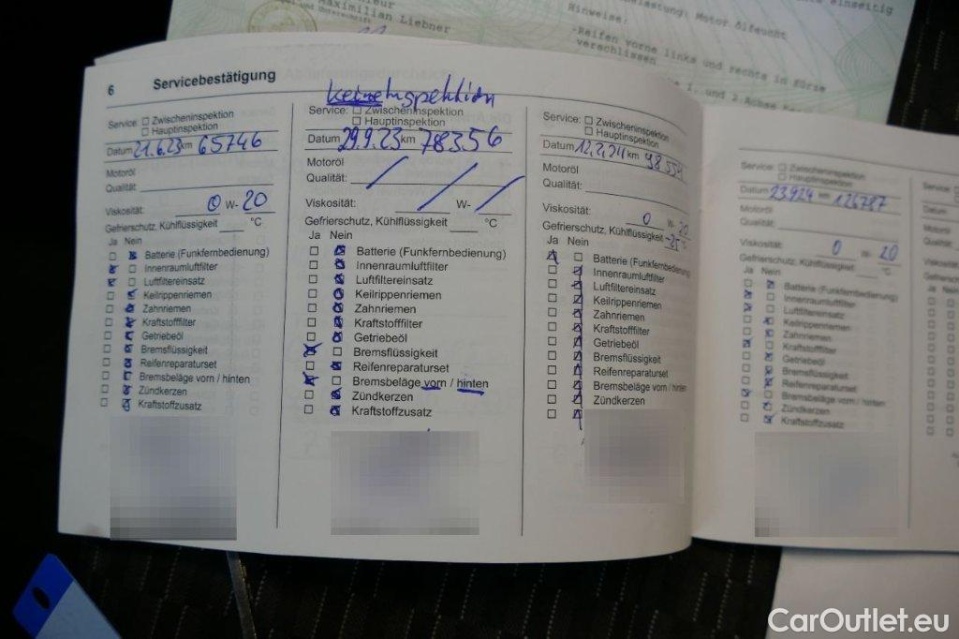 Maximilian Liebner
Hinweise:
-Reifen vorne links und rechts in Kürze
verschlissen
6 Servicebestätigung
Service: Zwischeninspektion
Hauptinspektion
Datum 21.6.23 km 65746
Motoröl
Qualität:
Viskosität: 0 W- 20
Gefrierschutz, Kühlflüssigkeit °C
Ja Nein
Batterie (Funkfernbedienung)
Innenraumluftfilter
Luftfiltereinsatz
Keilrippenriemen
Zahnriemen
Kraftstofffilter
Getriebeöl
Bremsflüssigkeit
Reifenreparaturset
Bremsbeläge vorn / hinten
Zündkerzen
Kraftstoffzusatz
keine Inspektion
Service: Zwischeninspektion
Hauptinspektion
Datum 29.9.23 km 78356
Motoröl
Qualität:
Viskosität: W-
Gefrierschutz, Kühlflüssigkeit °C
Ja Nein
Batterie (Funkfernbedienung)
Innenraumluftfilter
Luftfiltereinsatz
Keilrippenriemen
Zahnriemen
Kraftstofffilter
Getriebeöl
Bremsflüssigkeit
Reifenreparaturset
Bremsbeläge vorn / hinten
Zündkerzen
Kraftstoffzusatz
Service: Zwischeninspektion
Hauptinspektion
Datum 12.2.24 km 98554
Motoröl
Qualität:
Viskosität: 0 W- 20
Gefrierschutz, Kühlflüssigkeit -35 °C
Ja Nein
Batterie (Funkfernbedienung)
Innenraumluftfilter
Luftfiltereinsatz
Keilrippenriemen
Zahnriemen
Kraftstofffilter
Getriebeöl
Bremsflüssigkeit
Reifenreparaturset
Bremsbeläge vorn / hinten
Zündkerzen
Kraftstoffzusatz
Service: Zwischeninspektion
Hauptinspektion
Datum 23.9.24 km 126787
Motoröl
Qualität:
Viskosität: 0 W- 20
Gefrierschutz, Kühlflüssigkeit °C
Ja Nein
Batterie (Funkfernbedienung)
Innenraumluftfilter
Luftfiltereinsatz
Keilrippenriemen
Zahnriemen
Kraftstofffilter
Getriebeöl
Bremsflüssigkeit
Reifenreparaturset
Bremsbeläge vorn / hinten
Zündkerzen
Kraftstoffzusatz
Service:
Datum
Motoröl
Qualität
Ja Nein
CarOutlet.eu